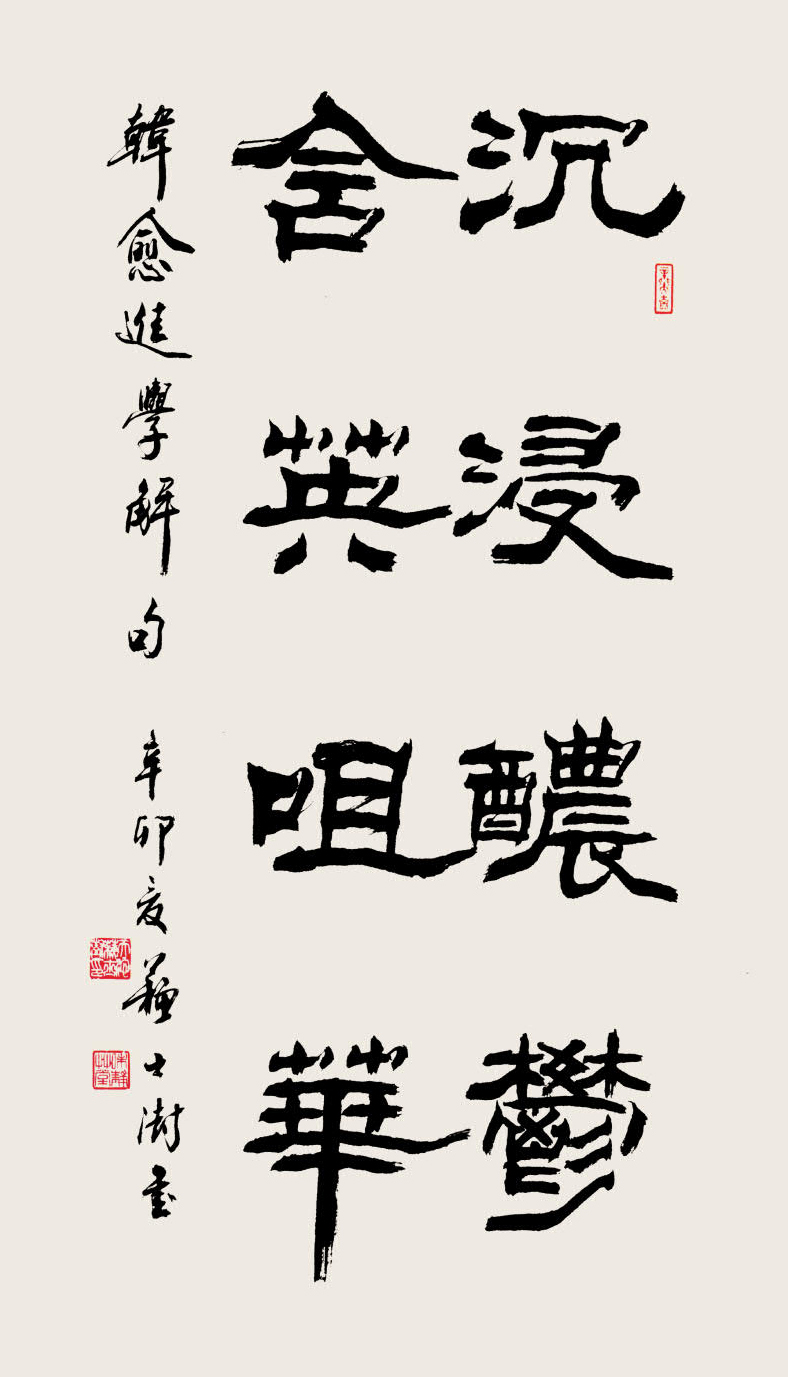 沉浸醲鬱
含英咀華
韓愈進學解句 辛卯夏蘇士澍書